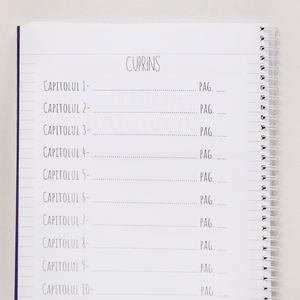 CUPRINS
CAPITOLUL 1- ........................ PAG. __
CAPITOLUL 2- ........................ PAG. __
CAPITOLUL 3- ........................ PAG. __
CAPITOLUL 4- ........................ PAG. __
CAPITOLUL 5- ........................ PAG. __
CAPITOLUL 6- ........................ PAG. __
CAPITOLUL 7- ........................ PAG. __
CAPITOLUL 8- ........................ PAG. __
CAPITOLUL 9- ........................ PAG. __
CAPITOLUL 10- ........................ PAG. __